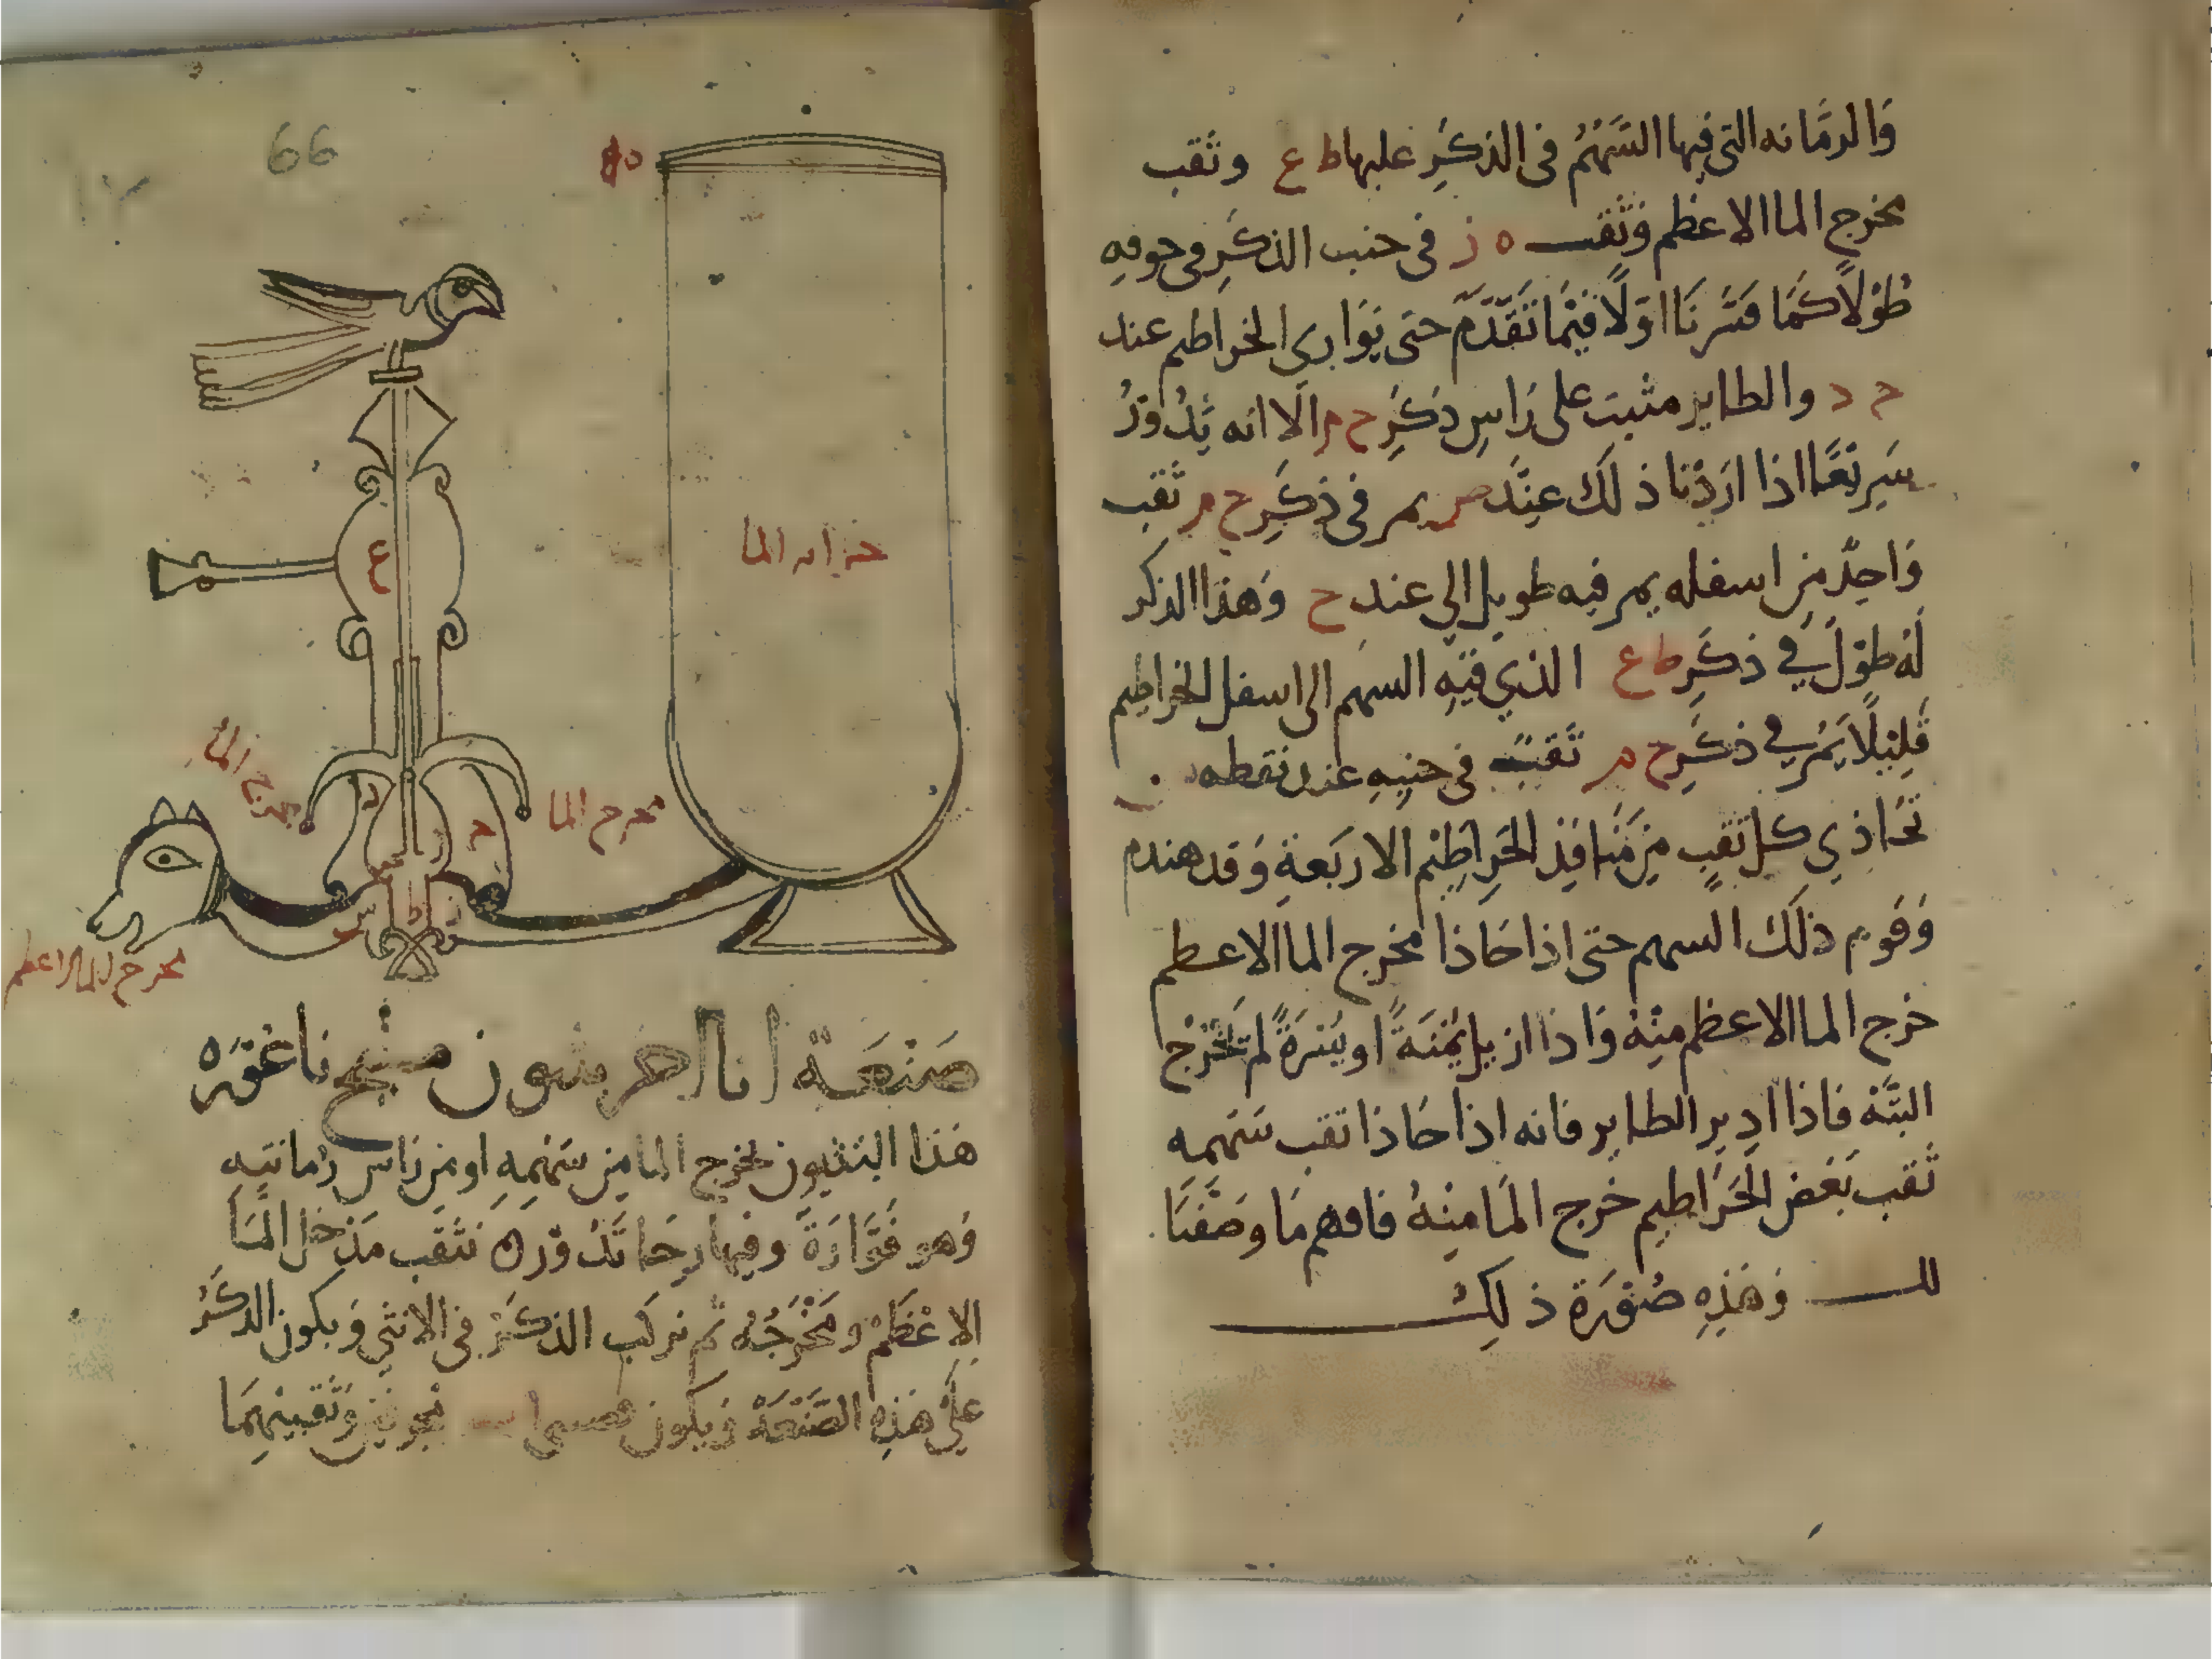 وَالرمَّانه التي فيها السَّهْمُ في الذكَرِ عليها ط ع وثقب
مخرج الما الاعظم وَثقب ه ز في جنب الذكَرِ وفي جوفهِ
طُوْلاً كَمَا فَسَّرنَا اوّلاً فيْمَا تَقَدَّمَ حتى يوَارى الخراطيم عند
ح د والطاير مثبت على رَاسِ ذكَرِ ح م الا انه يَدُوْرُ
سَرِيْعًا اذا ارَدْنا ذلَك عِنْدَ ص يمر في ذكَرِ ح م ثقب
وَاحِدٌ مِن اسفله يمر فيه طويل الى عند ح وَهذا الذكر
لَهُ طوْلٌ في ذكَرِ ط ع الذي فيْهِ السهم الى اسفل الخراطيم
قَلِيْلاً يَمُر في ذكَرِ ح م ثَقبٌ في جنبِهِ عند نقطه
تحَاذي كل ثقبٍ مِن مَنافِذِ الخَرِاطيْم الاربَعةِ وَقد هندم
وَقوم ذلَك السهم حتى اذا حَاذا مخرج الما الاعظم
خرج الما الاعظم مِنْهُ وَاذا ازيل يَمْنَةً او يَسْرَةً لم تَخْرُج
البتَّة فاذا ادِير الطاير فانه اذا حَاذا ثقب سَهمه
ثَقب بَعْض الخَرَاطيم خرج المَا مِنْهُ فافهم مَا وصَفْنَا
وَهَذِهِ صُوْرَة ذلِك
66
خزانه الما
ع
مخرج الما
مخرج الما
د
ح
ط
مخرج الما الاعظم
صَنْعَة انا اخر بثيون منبج ناعوره
هَذا البثيون يخرج الما مِن سَهْمِهِ او مِن رَاس رُمانتِهِ
وَهو فَوَّارَةَ وفيها رحَا تَدُوْرُ نثقب مَدْخل المَا
الاعْظمْ ومَخْرَجُه ثم نركب الذكَرْ في الانثي وَيكون الذكَرُ
عليْ هَذِه الصَّنْعَة وَيكون وَثقبيْهِمَا